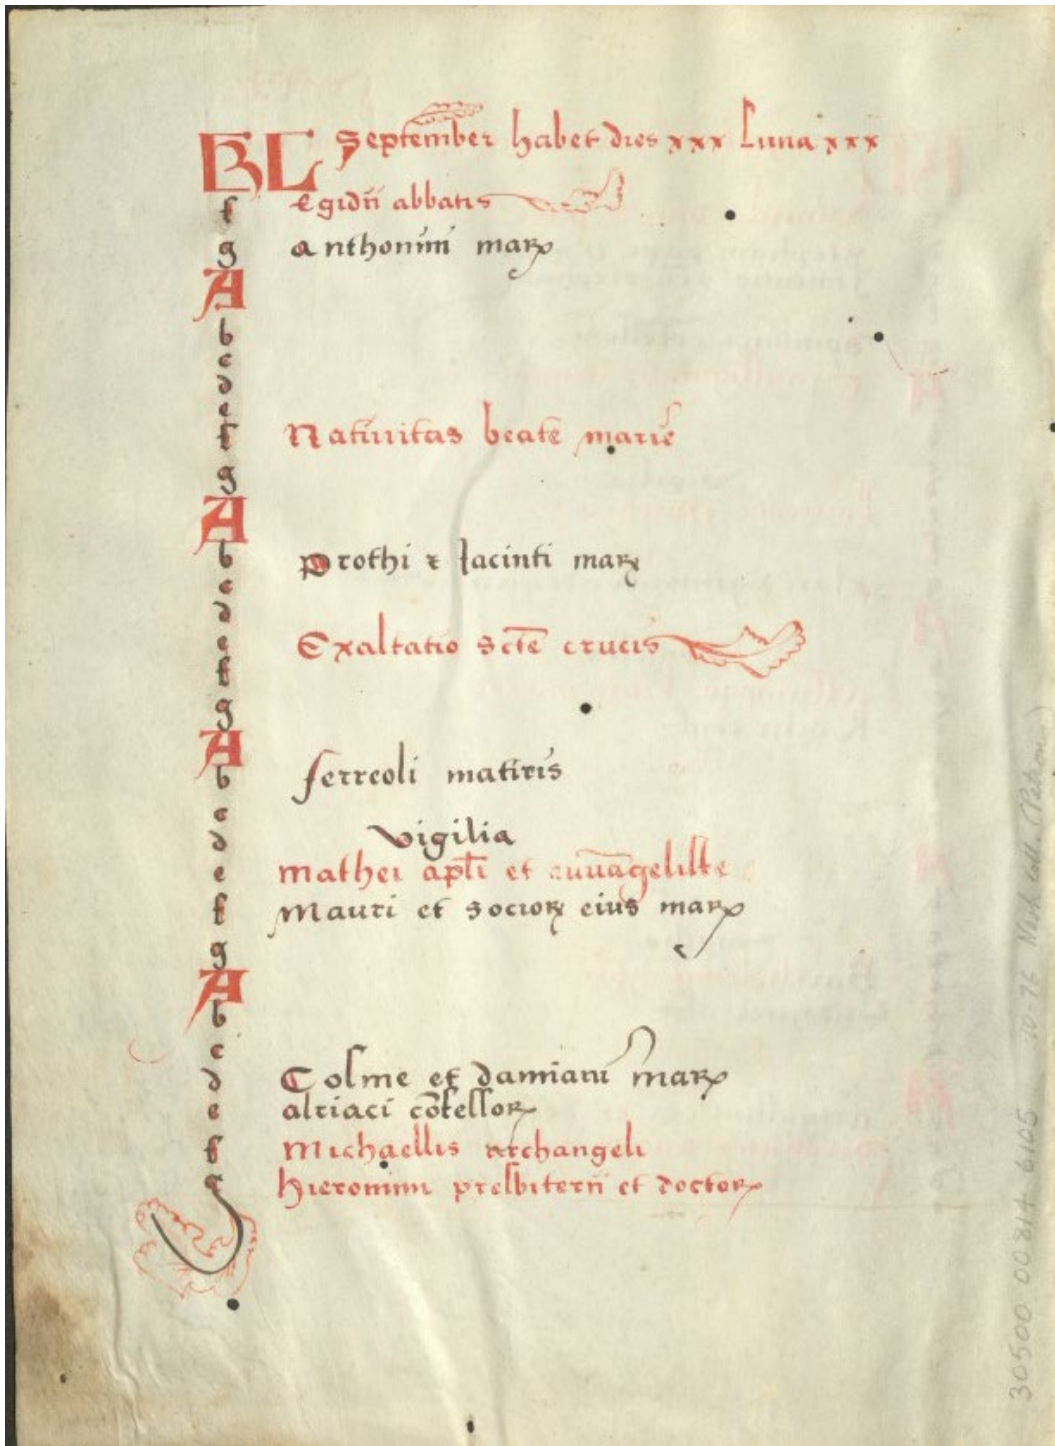 KL September habet dies xxx Luna xxx
f Egidii abbatis
g anthonini marꝝ
A
b
c
d
e
f Natiuitas beate marie
g
A
b prothi ⁊ Jacinti marꝝ
c
d
e Exaltatio scte crucis
f
g
A
b ferreoli matiris
c
d vigilia
e mathei apti et euuāgeliste
f Mauri et socioꝝ eius marꝝ
g
A
b
c
d Cosme et damiani marꝝ
e alriaci cōfessoꝝ
f Michaellis archangeli
g hieronimi presbiterii et doctoꝝ
30500 00814 6105 10-76 Nash coll. (Petronius)